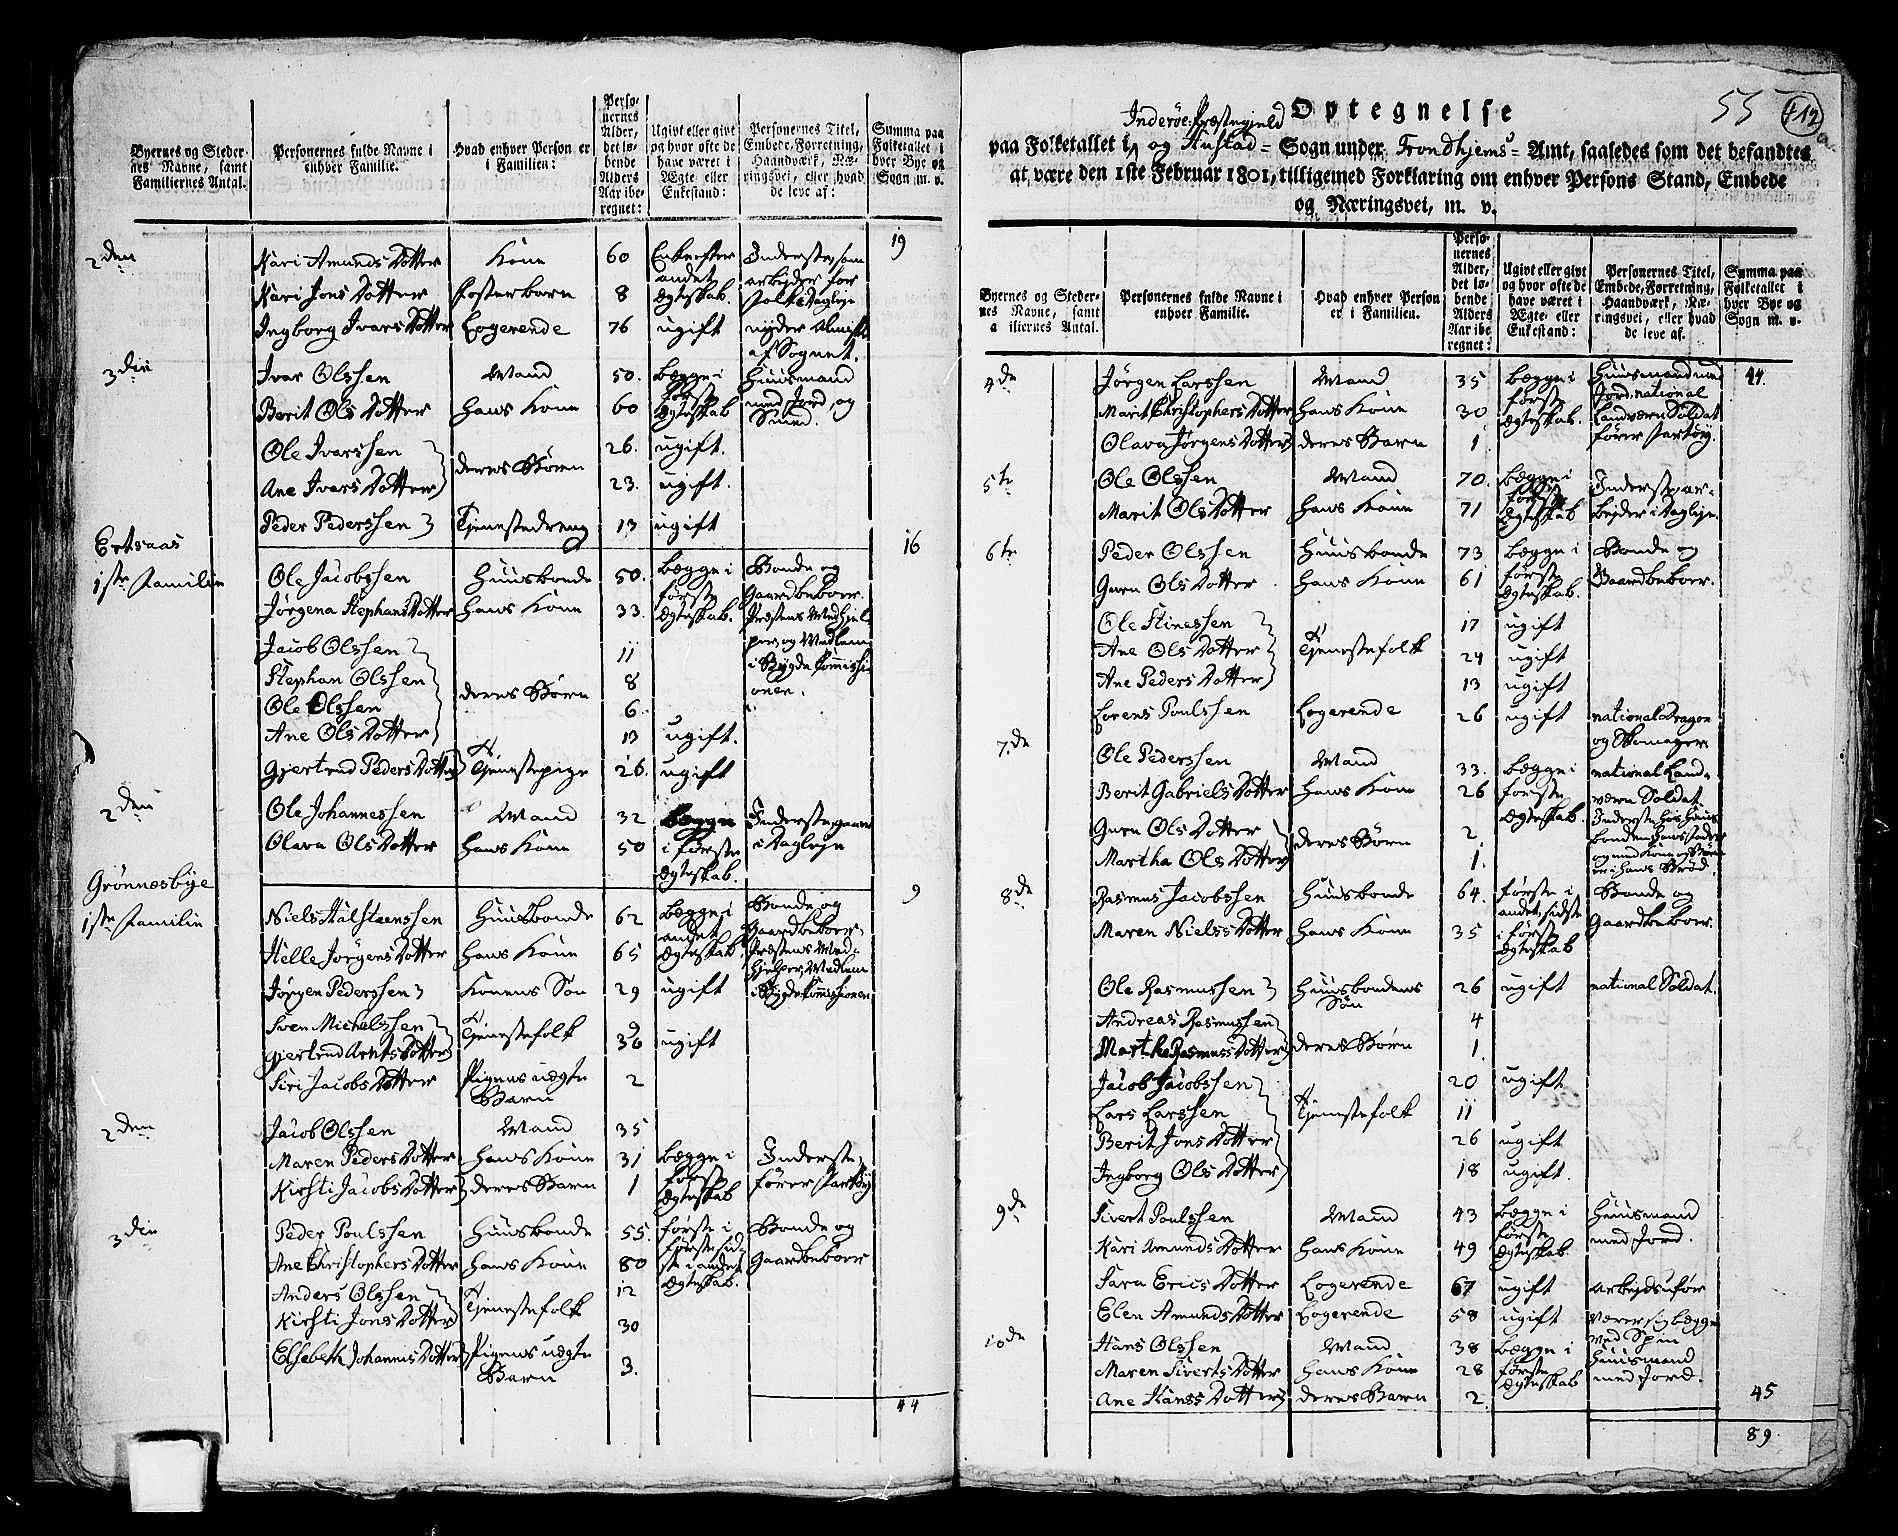 Byernes og Steder-
nes Navne, samt
Familiernes Antal.
Personernes fulde Navne i
enhver Familie.
Hvad enhver Person er
i Familien:
Perso-
nernes
Alder,
det lø-
bende
Alders
Aar ibe-
regnet:
Ugivt eller givt
og hvor ofte de
have været i
Ægte eller
Enkestand:
Personernes Titel,
Embede, Forretning,
Haandværk, Næ-
ringsvei, eller hvad
de leve af:
Summa paa
Folketallet i
hver Bye og
Sogn m. v.
19
2den
Kari Amunds Dotter Kone 60 Enke efter Inderste, som
andet arbejder for
Kari Jons Dotter Fosterbarn 8 Ægteskab. Folk i Dagleje
Ingborg Ivars Dotter Logerende 76 ugift nyder Almisse
af Sognet.
3die
Ivar Olssen Mand 50. Begge i Huusmand
første med Jord og
Berit Ols Dotter hans Kone 60 Ægteskab Smed.
Ole Ivarssen 26. ugift.
deres Børn
Ane Ivars Dotter 23. ugift.
Peder Pederssen Tjenestedreng 13 ugift
Ertsaas 16
1ste Familie
Ole Jacobssen Huusbonde 50. Begge i Bonde og
første Gaardbeboer.
Jørgena Stephans Dotter hans Kone 33. Ægteskab. Præstens Medhjel-
per, og Medlem
Jacob Olssen 11 i Bygde Commissi-
Stephan Olssen 8 onen.
deres Børn
Ole Olssen 6
Ane Ols Dotter 13 ugift.
Gjertrud Peders Dotter Tjenestepige 26. ugift
2den
Ole Johannessen Mand 32 Begge Inderste, gaaer
Olava Ols Dotter hans Kone 50 i første i Dagleje
Ægteskab.
Grönnesbye 9
1ste Familie
Niels Halsteenssen Huusbonde 62 Begge i Bonde og
andet Gaardbeboer,
Helle Jørgens Dotter hans Kone 65 Ægteskab Præstens Med-
hjelper, Medlem
Jørgen Pederssen Konens Søn 29 ugift i Bygde Commissionen
Sven Michelssen 9
Tjenestefolk
Gjertrud Arnts Dotter 36 ugift
Siri Jacobs Dotter Pigens uægte 2
Barn
2den
Jacob Olssen Mand 35
Maren Peders Dotter hans Kone 31 Begge i Inderste,
første
Kirsti Jacobs Dotter deres Barn 1 Ægteskab fører Partøy
3die
Peder Poulssen Huusbonde 55. første i Bonde og
første, sid-
Ane Christophers Dotter hans Kone 80 ste i andet Gaardbeboer
Anders Olssen 12 Ægteskab.
Tjenestefolk
Kirsti Jons Dotter 30
Elsebeth Johannis Dotter Pigens uægte 3.
Barn
44
55
412
Optegnelse
Inderøe Præstegield
paa Folketallet i og Hustad = Sogn under Trondhjems = Amt, saaledes som det befandtes
at være den 1ste Februar 1801, tilligemed Forklaring om enhver Persons Stand, Embede
og Næringsvei, m. v.
Byernes og Steder-
nes Navne, samt
a iliernes Antal.
Personernes fulde Navne i
enhver Familie.
Hvad enhver Person
er i Familien.
Perso-
nernes
Alder,
det lø-
bende
Alders
Aar ibe-
regnet:
Ugivt eller givt
og hvor ofte de
have været i
Ægte eller
Enkestand:
Personernes Titel,
Embede, Forretning,
Haandværk, Næ-
ringsvei, eller hvad
de leve af.
Summa paa
Folketallet i
hver Bye og
Sogn m. v.
4de
Jörgen Larssen Mand 35 Begge i Huusmand med 44.
første Jord, national
Marit Christophers Dotter hans Kone 30 Ægteskab. Landværn Soldat
Olava Jørgens Dotter deres Barn 1 fører Partøy.
5te
Ole Olssen Mand 70. Begge i Inderste, ar-
første
Marit Ols Dotter hans Kone 71 Ægteskab bejder i Dagleje.
6te
Peder Olssen Huusbonde 73 Begge i Bonde og
første
Guru Ols Dotter hans Kone 61 Ægteskab. Gaardbeboer.
Ole Stinessen 17 ugift
Ane Ols Dotter Tjenestefolk 24 ugift
Ane Peders Dotter 13 ugift
Lorens Poulssen Logerende 26 ugift national Dragon
og Skomager
7de
Ole Pederssen Mand 33. Begge i national Land-
Berit Gabriels Dotter hans Kone 26 første værn Soldat.
Ægteskab. Inderste, hos Huus-
Guru Ols Dotter 2 bonden, hans Fader
deres Børn og med Kone og Børn
Martha Ols Dotter 1. er i hans Brød.
8de
Rasmus Jacobssen Huusbonde 64. første i Bonde og
andet, sidste
Maren Niels Dotter hans Kone 35 i første Gaardbeboer.
Ægteskab
Ole Rasmussen Huusbondens 26 ugift national Soldat.
Søn
Andreas Rasmussen 4
Martha Rasmus Dotter deres Børn 1.
Jacob Jacobssen 20 ugift
Lars Larssen Tjenestefolk 11
Berit Jons Dotter 26 ugift
Ingborg Ols Dotter 18 ugift.
9de
Sivert Poulssen Mand 43 Begge i Huusmand
første
Kari Amunds Dotter hans Kone 49 Ægteskab. med Jord.
Sara Erics Dotter Logerende 67 ugift arbejdsufør
Elen Amunds Dotter Logerende 58 ugift nærer sig begge
ved Spin
10de
Hans Olssen Mand 38 Begge i Huusmand
Maren Siverts Dotter hans Kone 28 første med Jord.
Ane Hanss Dotter deres Barn 2 Ægteskab 45
89